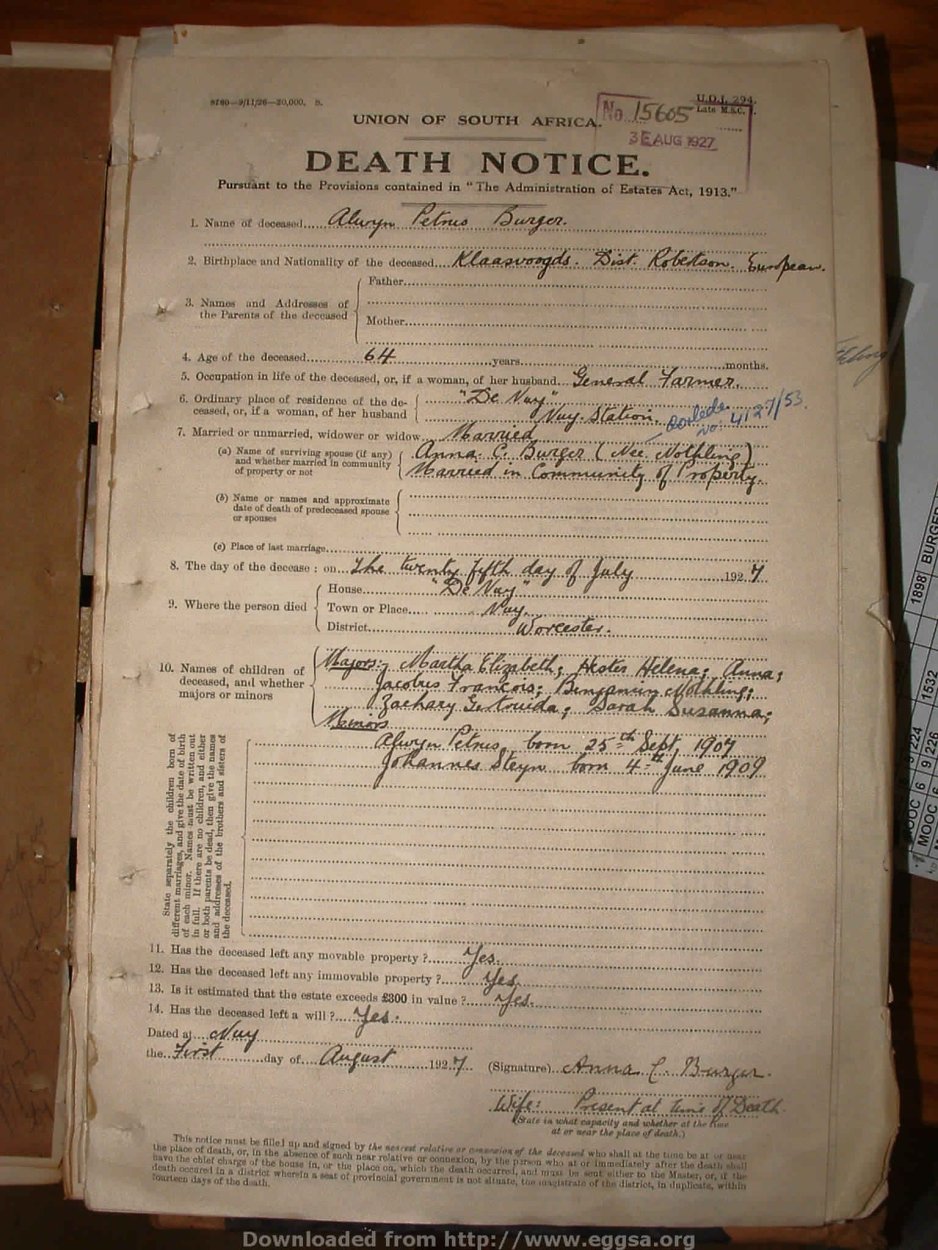 8160—9/11/26—20,000. S.
U.D.J. 294.
Late M.S.C.
No. 15605
3 AUG 1927
UNION OF SOUTH AFRICA.
DEATH NOTICE.
Pursuant to the Provisions contained in "The Administration of Estates Act, 1913."
1. Name of deceased Alwyn Petrus Burger.
2. Birthplace and Nationality of the deceased Klaasvoogds. Dist. Robertson. European.
3. Names and Addresses of the Parents of the deceased
Father
Mother
4. Age of the deceased 64 years months.
5. Occupation in life of the deceased, or, if a woman, of her husband General Farmer.
6. Ordinary place of residence of the deceased, or, if a woman, of her husband
"De Nuy"
Nuy Station.
no. 4127/53.
7. Married or unmarried, widower or widow Married
(a) Name of surviving spouse (if any) and whether married in community of property or not
Anna. C. Burger (Nee Nothling)
Married in Community of Property.
(b) Name or names and approximate date of death of predeceased spouse or spouses
(c) Place of last marriage
8. The day of the decease: on The twenty fifth day of July 1927.
9. Where the person died
House "De Nuy"
Town or Place Nuy.
District Worcester.
10. Names of children of deceased, and whether majors or minors
Majors: Martha Elizabeth; Hester Helena; Anna;
Jacobus Francois; Benjamin Nothling;
Zachary Gertruida; Sarah Susanna;
Minors
Alwyn Petrus, born 25th Sept, 1907
Johannes Steyn born 4th June 1909
State separately the children born of
different marriages, and give the date of birth
of each minor. Names must be written out
in full. If there are no children, and either
or both parents be dead, then give the names
and addresses of the brothers and sisters of
the deceased.
11. Has the deceased left any movable property? Yes.
12. Has the deceased left any immovable property? Yes.
13. Is it estimated that the estate exceeds £300 in value? Yes.
14. Has the deceased left a will? Yes.
Dated at Nuy
the First day of August 1927.
(Signature) Anna C. Burger.
Wife: Present at time of Death.
(State in what capacity and whether at the time
at or near the place of death.)
This notice must be filled up and signed by the nearest relative or connexion of the deceased who shall at the time be at or near
the place of death, or, in the absence of such near relative or connexion, by the person who at or immediately after the death shall
have the chief charge of the house in, or the place on, which the death occurred, and must be sent either to the Master, or, if the
death occured in a district wherein a seat of provincial government is not situate, the magistrate of the district, in duplicate, within
fourteen days of the death.
1898 BURGER
MOOC 6 9/226 1532
Downloaded from http://www.eggsa.org